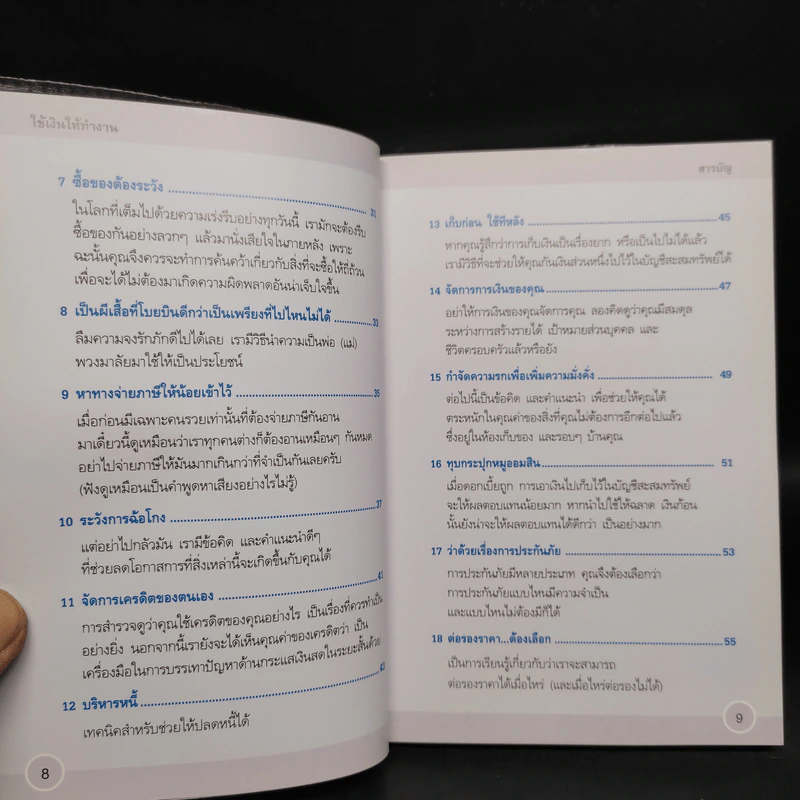 ใช้เงินให้ทำงาน
7 ซื้อของต้องระวัง ........ 31
ในโลกที่เต็มไปด้วยความเร่งรีบอย่างทุกวันนี้ เรามักจะต้องรีบ
ซื้อของกันอย่างลวกๆ แล้วมานั่งเสียใจในภายหลัง เพราะ
ฉะนั้นคุณจึงควรจะทำการค้นคว้าเกี่ยวกับสิ่งที่จะซื้อให้ถี่ถ้วน
เพื่อจะได้ไม่ต้องมาเกิดความผิดพลาดอันน่าเจ็บใจขึ้น
8 เป็นผีเสื้อที่โบยบินดีกว่าเป็นเพรียงที่ไปไหนไม่ได้ ........ 33
ลืมความจงรักภักดีไปได้เลย เรามีวิธีนำความเป็นพ่อ (แม่)
พวงมาลัยมาใช้ให้เป็นประโยชน์
9 หาทางจ่ายภาษีให้น้อยเข้าไว้ ........ 35
เมื่อก่อนมีเฉพาะคนรวยเท่านั้นที่ต้องจ่ายภาษีกันอาน
มาเดี๋ยวนี้ดูเหมือนว่าเราทุกคนต่างก็ต้องอานเหมือนๆ กันหมด
อย่าไปจ่ายภาษีให้มันมากเกินกว่าที่จำเป็นกันเลยครับ
(ฟังดูเหมือนเป็นคำพูดหาเสียงอย่างไรไม่รู้)
10 ระวังการฉ้อโกง ........ 37
แต่อย่าไปกลัวมัน เรามีข้อคิด และคำแนะนำดีๆ
ที่ช่วยลดโอกาสการที่สิ่งเหล่านี้จะเกิดขึ้นกับคุณได้
11 จัดการเครดิตของตนเอง ........ 41
การสำรวจดูว่าคุณใช้เครดิตของคุณอย่างไร เป็นเรื่องที่ควรทำเป็น
อย่างยิ่ง นอกจากนี้เรายังจะได้เห็นคุณค่าของเครดิตว่า เป็น
เครื่องมือในการบรรเทาปัญหาด้านกระแสเงินสดในระยะสั้นด้วย
12 บริหารหนี้ ........ 43
เทคนิคสำหรับช่วยให้ปลดหนี้ได้
8
สารบัญ
13 เก็บก่อน ใช้ทีหลัง ........ 45
หากคุณรู้สึกว่าการเก็บเงินเป็นเรื่องยาก หรือเป็นไปไม่ได้แล้ว
เรามีวิธีที่จะช่วยให้คุณกันเงินส่วนหนึ่งไปไว้ในบัญชีสะสมทรัพย์ได้
14 จัดการการเงินของคุณ ........ 47
อย่าให้การเงินของคุณจัดการคุณ ลองคิดดูว่าคุณมีสมดุล
ระหว่างการสร้างรายได้ เป้าหมายส่วนบุคคล และ
ชีวิตครอบครัวแล้วหรือยัง
15 กำจัดความรกเพื่อเพิ่มความมั่งคั่ง ........ 49
ต่อไปนี้เป็นข้อคิด และคำแนะนำ เพื่อช่วยให้คุณได้
ตระหนักในคุณค่าของสิ่งที่คุณไม่ต้องการอีกต่อไปแล้ว
ซึ่งอยู่ในห้องเก็บของ และรอบๆ บ้านคุณ
16 ทุบกระปุกหมูออมสิน ........ 51
เมื่อดอกเบี้ยถูก การเอาเงินไปเก็บไว้ในบัญชีสะสมทรัพย์
จะให้ผลตอบแทนน้อยมาก หากนำไปใช้ให้ฉลาด เงินก้อน
นั้นยังน่าจะให้ผลตอบแทนได้ดีกว่า เป็นอย่างมาก
17 ว่าด้วยเรื่องการประกันภัย ........ 53
การประกันภัยมีหลายประเภท คุณจึงต้องเลือกว่า
การประกันภัยแบบไหนมีความจำเป็น
และแบบไหนไม่ต้องมีก็ได้
18 ต่อรองราคา...ต้องเลือก ........ 55
เป็นการเรียนรู้เกี่ยวกับว่าเราจะสามารถ
ต่อรองราคาได้เมื่อไหร่ (และเมื่อไหร่ต่อรองไม่ได้)
9